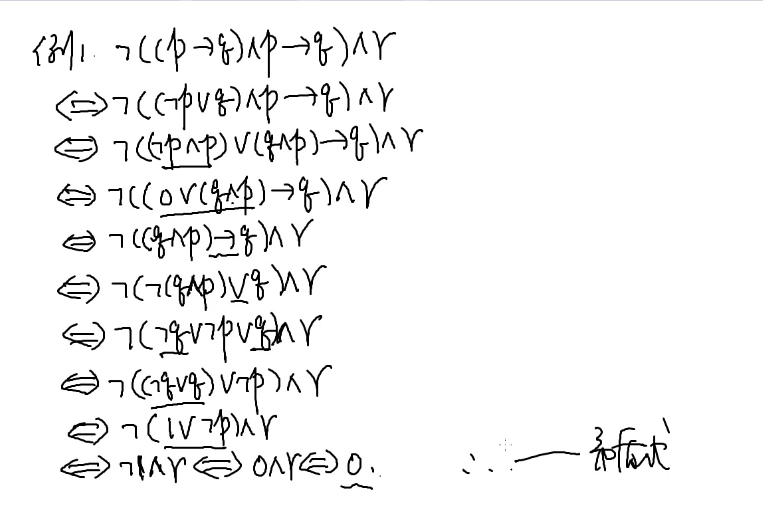 例1. ¬((p→q)∧p→q)∧r
⇔¬((¬p∨q)∧p→q)∧r
⇔ ¬((¬p∧p)∨(q∧p)→q)∧r
⇔ ¬((0∨(q∧p)→q)∧r
⇔ ¬((q∧p)→q)∧r
⇔ ¬(¬(q∧p)∨q)∧r
⇔ ¬(¬q∨¬p∨q)∧r
⇔ ¬((¬q∨q)∨¬p)∧r
⇔ ¬(1∨¬p)∧r
⇔ ¬1∧r ⇔ 0∧r ⇔ 0. ∴ —— 矛盾式